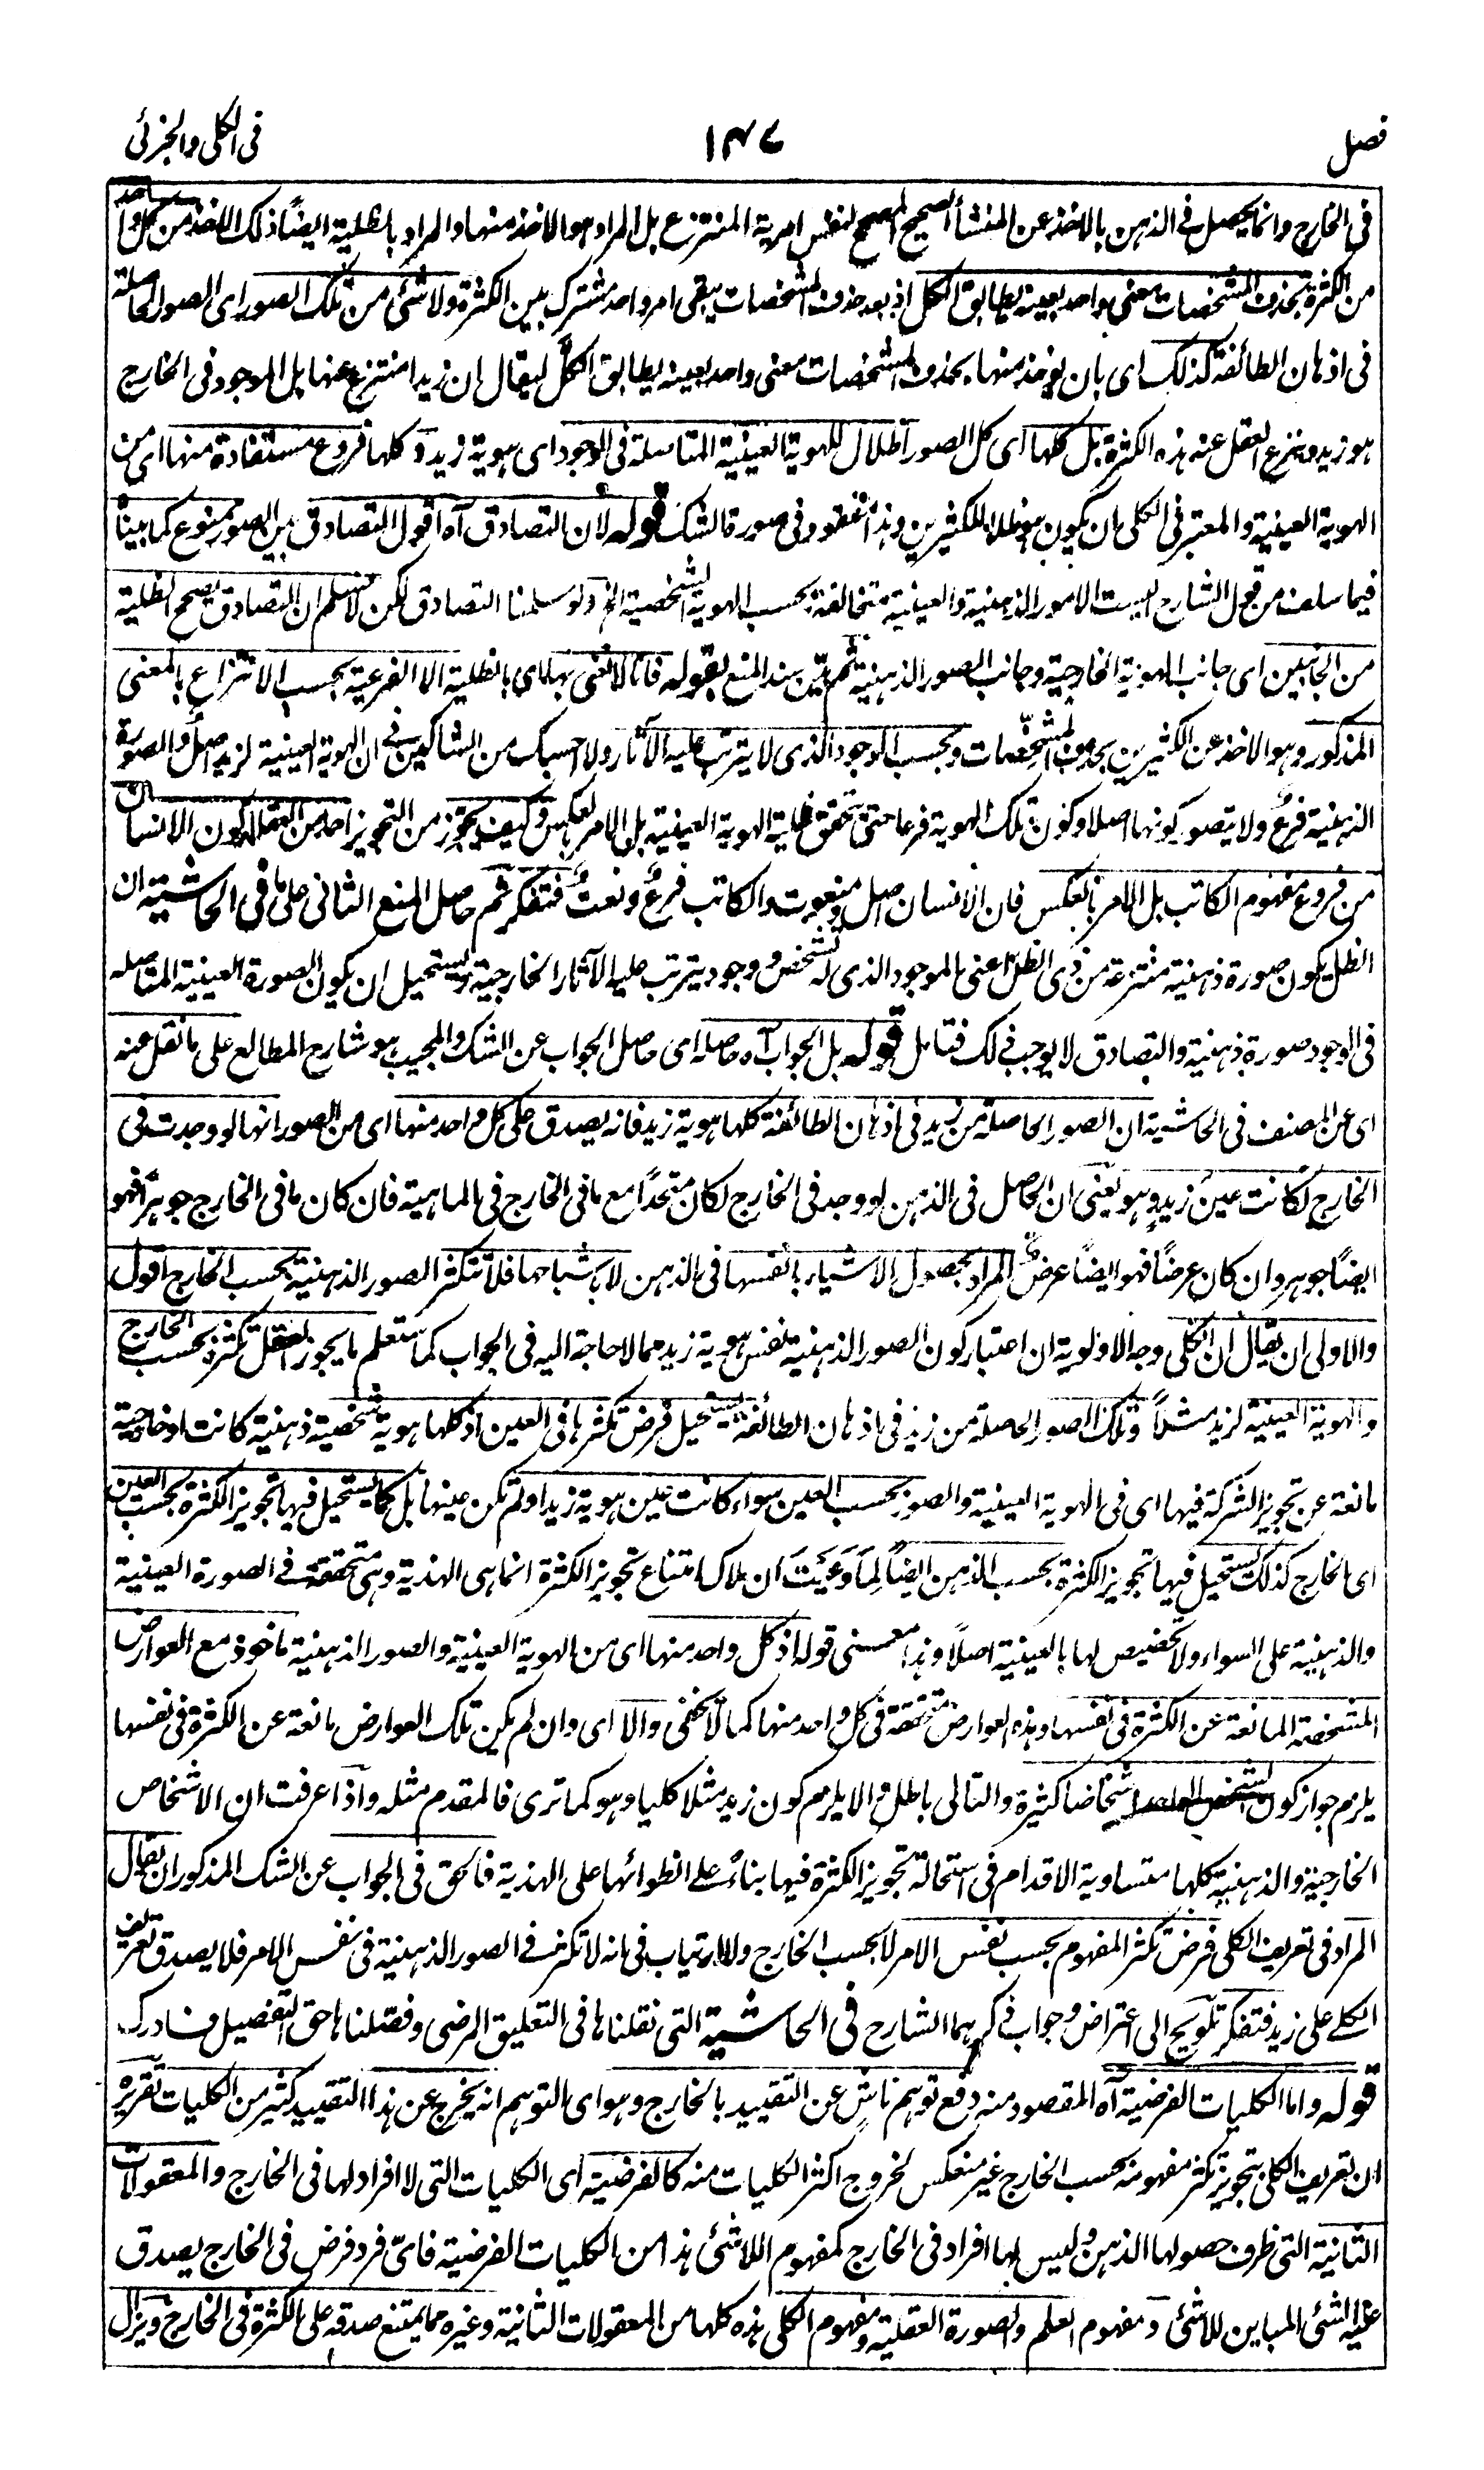 فصل ١٤٧ فى الكلى والجزئى
فى الخارج وانما يحصل فى الذهن بالاخذ عن المنشأ الصحيح المصحح لنفس امرية المنتزع بل المراد هو الاخذ منها والمراد بالظلية ايضًا ذلك الاخذ من كل واحد
من الكثرة بحذف المشخصات معنى واحد بعينه يطابق الكل اذ بعد حذف المشخصات يبقى امر واحد مشترك بين الكثرة ولا شئ من تلك الصور اى الصور الحاصلة
فى اذهان الطائفة كذلك اى بان يؤخذ منها بحذف المشخصات معنى واحد بعينه يطابق الكل ليقال ان زيدا منتزع عنها بل الموجود فى الخارج
هو زيد وينزع العقل عنه هذه الكثرة بل كلها اى كل الصور اظلال للهوية العينية المتاصلة فى الوجود اى هوية زيد وكلها فروع مستفادة منها اى من
الهوية العينية والمعتبر فى الكلى ان يكون هو ظلا للكثيرين وهذا مفقود فى صورة الشك قوله لان التصادق آه اقول التصادق بين الصور ممنوع كما بينا
فيما سلف من قول الشارح ليست الامور الذهنية والعينية متخالفة بحسب الهوية الشخصية الخ ولو سلمنا التصادق لكن لا نسلم ان التصادق يصحح الظلية
من الجانبين اى جانب الهوية الخارجية وجانب الصور الذهنية ثم بيّن سند المنع بقوله فانا لا نعنى بها اى بالظلية الا الفرعية بحسب الانتزاع بالمعنى
المذكور وهو الاخذ عن الكثيرين بحذف المشخّصات وبحسب الوجود الذى لا يترتب عليه الآثار ولا احسبك من الشاكين فى ان الهوية العينية لزيد اصلٌ والصورة
الذهنية فرعٌ ولا يتصور كونها اصلا وكون تلك الهوية فرعا حتى يتحقق ظلية الهوية العينية بل الامر بالعكس وكيف يجوّز من التجويز احد من العقلاء كون الانسان
من فروع مفهوم الكاتب بل الامر بالعكس فان الانسان اصل ومنعوت والكاتب فرعٌ ونعتٌ فتفكر ثم حاصل المنع الثانى على ما فى الحاشية ان
الظل يكون صورة ذهنية منتزعة من ذى الظل اعنى الموجود الذى له تشخص ووجود يترتب عليه الآثار الخارجية ويستحيل ان يكون الصورة العينية المتاصلة
فى الوجود صورة ذهنية والتصادق لا يوجب ذلك فتامل قوله بل الجواب آه حاصله اى حاصل الجواب عن الشك والمجيب هو شارح المطالع على ما نقل عنه
اى عن المصنف فى الحاشية ان الصور الحاصلة من زيد فى اذهان الطائفة كلها هوية زيد فانه يصدق على كل واحد منها اى من الصور انها لو وجدت فى
الخارج لكانت عين زيدٍ وهو يعنى ان الحاصل فى الذهن لو وجد فى الخارج لكان متحدًا مع ما فى الخارج فى الماهية فان كان ما فى الخارج جوهرًا فهو
ايضًا جوهر وان كان عرضًا فهو ايضًا عرضٌ المراد بحصول الاشياء بانفسها فى الذهن لا باشباحها فلا تتكثر الصور الذهنية بحسب الخارج اقول
والاولى ان يقال ان الكلى وجه الاولوية ان اعتبار كون الصور الذهنية نفس هوية زيد مما لا حاجة اليه فى الجواب كما ستعلم ما يجوز العقل تكثره بحسب الخارج
والهوية العينية لزيد مثلاً وتلك الصور الحاصلة من زيد فى اذهان الطائفة يستحيل فرض تكثرها فى العين اذ كلها هوية شخصية ذهنية كانت او خارجية
مانعة عن تجويز الشركة فيها اى فى الهوية العينية والصور بحسب العين سواء كانت عين هوية زيد او لم تكن عينها بل كما يستحيل فيها تجويز الكثرة بحسب العين
اى الخارج كذلك يستحيل فيها تجويز الكثرة بحسب الذهن ايضًا لِمَا وَعَيْتَ ان ملاك امتناع تجويز الكثرة انما هى الهذية وهى متحققة فى الصورة العينية
والذهنية على السواء ولا تخصيص لها بالعينية اصلًا وهذا معنى قوله اذ كل واحد منها اى من الهوية العينية والصور الذهنية ماخوذ مع العوارض
المشخصة المانعة عن الكثرة فى نفسها وهذه العوارض متحققة فى كل واحد منها كما لا يخفى والا اى وان لم يكن تلك العوارض مانعة عن الكثرة فى نفسها
يلزم جواز كون الشخص الواحد اشخاصا كثيرة والتالى باطل والا يلزم كون زيد مثلا كليا وهو كما ترى فالمقدم مثله واذا عرفت ان الاشخاص
الخارجية والذهنية كلها متساوية الاقدام فى استحالة تجويز الكثرة فيها بناءً على انطوائها على الهذية فالحق فى الجواب عن الشك المذكور ان يقال
المراد فى تعريف الكلى فرض تكثر المفهوم بحسب نفس الامر لا بحسب الخارج ولا ارتياب فى انه لا تكثر فى الصور الذهنية فى نفس الامر فلا يصدق تعريف
الكلى على زيد فتفكر تلويح الى اعتراض وجواب ذكرهما الشارح فى الحاشية التى نقلناها فى التعليق المرضى وفصّلناها حق التفصيل فادرك
قوله واما الكليات الفرضية آه المقصود منه دفع توهم ناشٍ عن التقييد بالخارج وهو اى التوهم انه يخرج عن هذا التقييد كثير من الكليات تقريره
ان تعريف الكلى بتجويز تكثر مفهومه بحسب الخارج غير منعكس لخروج اكثر الكليات منه كالفرضية اى الكليات التى لا افراد لها فى الخارج والمعقولات
الثانية التى ظرف حصولها الذهن وليس لها افراد فى الخارج كمفهوم اللاشئ هذا من الكليات الفرضية فاىّ فرد فرض فى الخارج يصدق
عليه الشئ المباين للاشئ ومفهوم العلم والصورة العقلية ومفهوم الكلى هذه كلها من المعقولات الثانية وغيره مما يمتنع صدقه على الكثرة فى الخارج ويزال